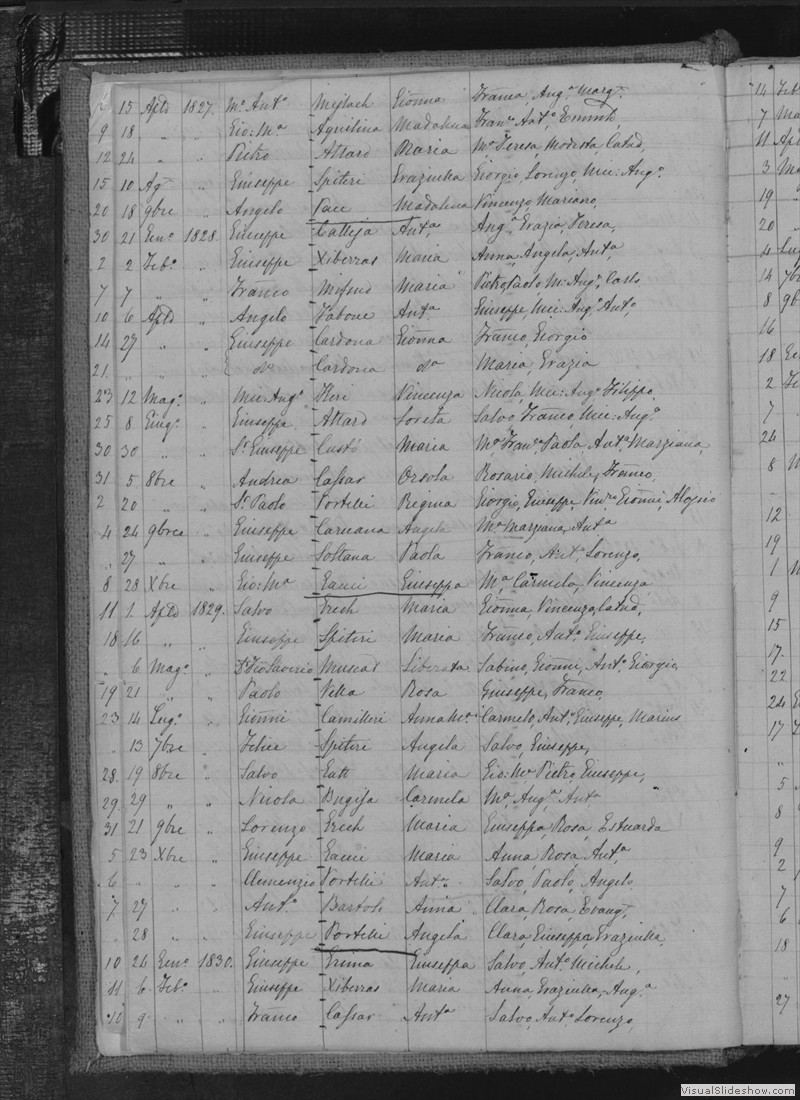 15 Aple 1827. Ma. Anta. Mejlach Gionna Franca, Anga. Marga.
9 18 " " Gio: Ma. Aquilina Madalena Franc. Anta.
12 24 " " Pietro Attard Maria Ma. Teresa, Modesta, Catad,
15 10 Ag. " Giuseppe Spiteri Graziulla Giorgio, Lorenzo, Mic: Ango.
20 18 9bre " Angelo Pace Madalena Vincenzo, Mariano,
30 21 Genn. 1828. Giuseppe Calleja Anta. Ang. Grazia, Teresa,
2 2 Feb. " Giuseppe Xiberras Maria Anna, Angela, Anta.
7 7 " " Franco Mifsud Maria Pietro Paolo, M: Ang, Carlo
10 6 Aple " Angelo Vabone Anta. Giuseppe, Mic: Ango. Anto.
14 27 " " Giuseppe Cardona Gionna Franco, Giorgio
21. " " " do. Cardona da. Maria, Grazia
23 12 Mago. " Mic: Ango. Vincenza Nicola, Mic: Ango. Filippo,
25 8 Giugo. " Giuseppe Attard Loreta Salvo, Franco, Mic: Ango.
30 30 " " Sr. Giuseppe Custò Maria Ma. Franca. Paola, Anta. Marziana,
31 5 8bre " Andrea Cassar Orsola Rosario, Michele, Franco,
2 20 " " Sr. Paolo Portelli Regina Giorgio, Giuseppe, Gionni, Aloysio
4 24 9bre " Giuseppe Caruana Angela Ma. Marziana, Anta.
" 27 " " Giuseppe Soltana Paola Franco, Anto. Lorenzo,
8 28 Xbre " Gio: Ma. Gauci Giuseppa Ma. Carmela, Vincenza
11 1. Aple 1829. Salvo Grech Maria Gionna, Vincenza, Catad,
18 16 " " Giuseppe Spiteri Maria Franco, Anto. Giuseppe,
" 6 Mago. " Fr. Fco. Saverio Muscat Liberata Sabino, Gionni, Anto. Giorgio
19 21 " " Paolo Vella Rosa Giuseppe, Franco,
23 14 Lugo. " Gionni Camilleri Anna Ma. Carmelo, Anto. Giuseppe, Marius
" 13 7bre " Felice Spiteri Angela Salvo, Giuseppe,
28. 19 8bre " Salvo Gatt Maria Gio: Ma. Pietro, Giuseppe,
29 29 " " Nicola Bugeja Carmela Ma. Anga. Anta.
31 21 9bre " Lorenzo Grech Maria Giuseppa, Rosa, Estuarda
5 23 Xbre " Giuseppe Gauci Maria Anna, Rosa, Anta.
6 " " " Clemenzio Portelli Anta. Salvo, Paolo, Angelo
7 27 " " Anto. Bartoli Anna Clara, Rosa, Evang.
" 28 " " Giuseppe Portelli Angela Clara, Giuseppa, Graziulla,
10 26 Genn. 1830. Giuseppe Grima Giuseppa Salvo, Anto. Michele,
11 6 Feb. " Giuseppe Xiberras Maria Anna, Graziulla, Anga.
10 9 " " Franco Cassar Anta. Salvo, Anto. Lorenzo,
14 Feb
7 Ma
11 Ap
3 Ma
19
20
4 Lug
14 7b
8 9b
16
18 Ge
2 Fe
7
24
8 M
12
19
1
9
15
17.
22
24
17
5
8
9
2
7
6
18
27
VisualSlideshow.com